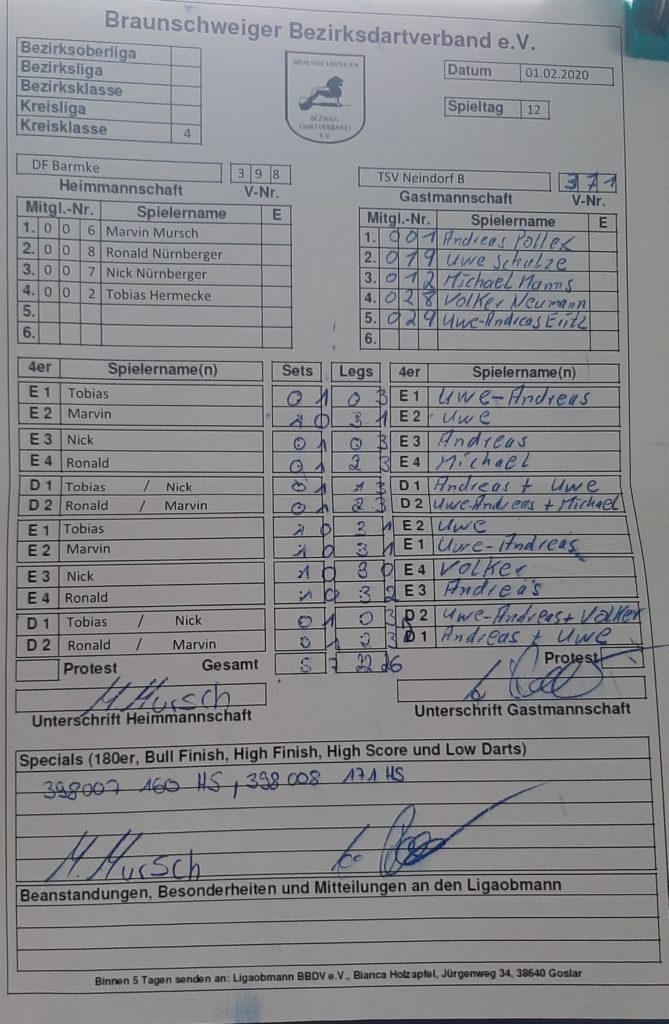 Braunschweiger Bezirksdartverband e.V.
Bezirksoberliga
Bezirksliga
Bezirksklasse
Kreisliga
Kreisklasse 4
BRAUNSCHWEIGER
BEZIRKS-
DARTVERBAND
E.V.
Datum 01.02.2020
Spieltag 12
DF Barmke 3 9 8
Heimmannschaft V-Nr.
TSV Neindorf B 3 7 1
Gastmannschaft V-Nr.
Mitgl.-Nr. Spielername E
1. 0 0 6 Marvin Mursch
2. 0 0 8 Ronald Nürnberger
3. 0 0 7 Nick Nürnberger
4. 0 0 2 Tobias Hermecke
5.
6.
Mitgl.-Nr. Spielername E
1. 0 0 1 Andreas Pollex
2. 0 1 9 Uwe Schulze
3. 0 1 2 Michael Manns
4. 0 2 8 Volker Neumann
5. 0 2 9 Uwe-Andreas
6.
4er Spielername(n) Sets Legs 4er Spielername(n)
E 1 Tobias 0 1 0 3 E 1 Uwe-Andreas
E 2 Marvin 1 0 3 1 E 2 Uwe
E 3 Nick 0 1 0 3 E 3 Andreas
E 4 Ronald 0 1 2 3 E 4 Michael
D 1 Tobias / Nick 0 1 1 3 D 1 Andreas + Uwe
D 2 Ronald / Marvin 0 1 2 3 D 2 Uwe-Andreas + Michael
E 1 Tobias 1 0 3 1 E 2 Uwe
E 2 Marvin 1 0 3 1 E 1 Uwe-Andreas
E 3 Nick 1 0 3 0 E 4 Volker
E 4 Ronald 1 0 3 2 E 3 Andreas
D 1 Tobias / Nick 0 1 0 3 D 2 Uwe-Andreas + Volker
D 2 Ronald / Marvin 0 1 2 3 D 1 Andreas + Uwe
Protest Gesamt 5 7 22 26 Protest
M. Mursch
Unterschrift Heimmannschaft
Unterschrift Gastmannschaft
Specials (180er, Bull Finish, High Finish, High Score und Low Darts)
398007 160 HS, 398 008 171 HS
M. Mursch
Beanstandungen, Besonderheiten und Mitteilungen an den Ligaobmann
Binnen 5 Tagen senden an: Ligaobmann BBDV e.V., Bianca Holzapfel, Jürgenweg 34, 38640 Goslar